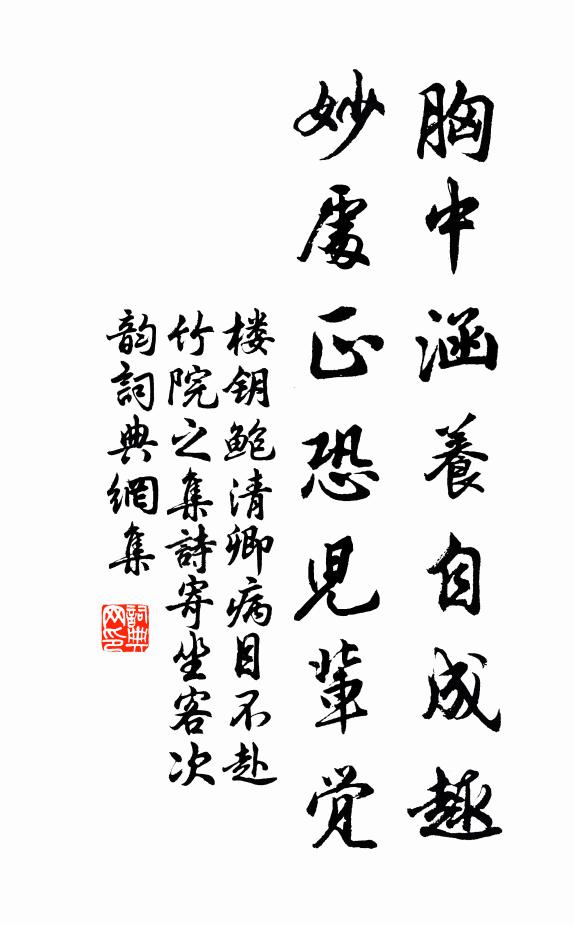 胸中涵養自成趣
妙處正恐児輩觉
楼钥鲍清卿病目不赴
竹院之集詩寄坐客次
韵詞典網集
詞典
网印